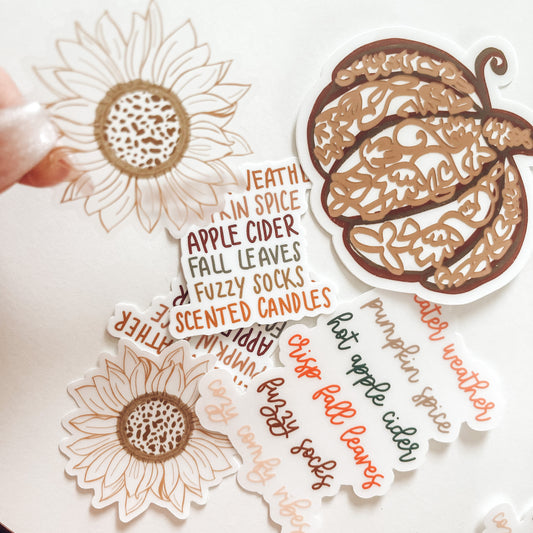 WEATHER
PUMPKIN SPICE
APPLE CIDER
FALL LEAVES
FUZZY SOCKS
SCENTED CANDLES
WEATHER
PUMPKIN
APPLE
sweater weather
pumpkin spice
hot apple cider
crisp fall leaves
fuzzy socks
cozy comfy vibes